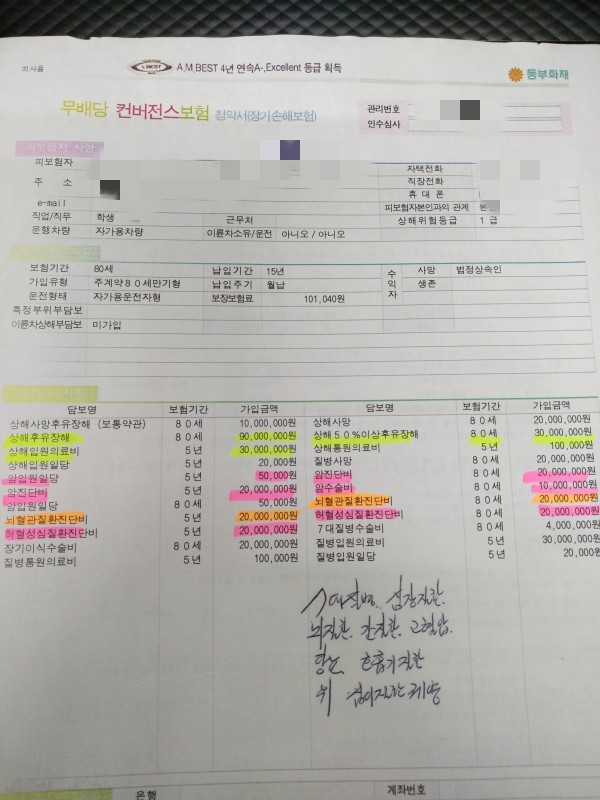 회사홈
A.M.BEST 4년 연속A-,Excellent 등급 획득
동부화재
무배당 컨버전스보험 청약서(장기손해보험)
관리번호
인수심사
피보험자 사항
피보험자 자택전화
주 소 직장전화
휴 대 폰
e-mail 피보험자본인과의 관계 본인
직업/직무 학생 근무처 상해위험등급 1 급
운행차량 자가용차량 이륜차소유/운전 아니오 / 아니오
보험기간 80세 납입기간 15년 수익자 사망 법정상속인
가입유형 주계약80세만기형 납입주기 월납 생존
운전형태 자가용운전자형 보장보험료 101,040원
특정부위부담보
이륜차상해부담보 미가입
담보명 보험기간 가입금액 담보명 보험기간 가입금액
상해사망후유장해 (보통약관) 80세 10,000,000원 상해사망 80세 20,000,000원
상해후유장해 80세 90,000,000원 상해50%이상후유장해 80세 30,000,000원
상해입원의료비 5년 30,000,000원 상해통원의료비 5년 100,000원
상해입원일당 5년 20,000원 질병사망 80세 20,000,000원
암입원일당 5년 50,000원 암진단비 80세 20,000,000원
암진단비 5년 20,000,000원 암수술비 80세 10,000,000원
암입원일당 80세 50,000원 뇌혈관질환진단비 80세 20,000,000원
뇌혈관질환진단비 5년 20,000,000원 허혈성심질환진단비 80세 20,000,000원
허혈성심질환진단비 5년 20,000,000원 7대질병수술비 80세 4,000,000원
장기이식수술비 80세 20,000,000원 질병입원의료비 5년 30,000,000원
질병통원의료비 5년 100,000원 질병입원일당 5년 20,000원
심장질환.
뇌질환. 간질환. 고혈압.
당뇨. 호흡기질환
위 십이지장궤양
은행 계좌번호